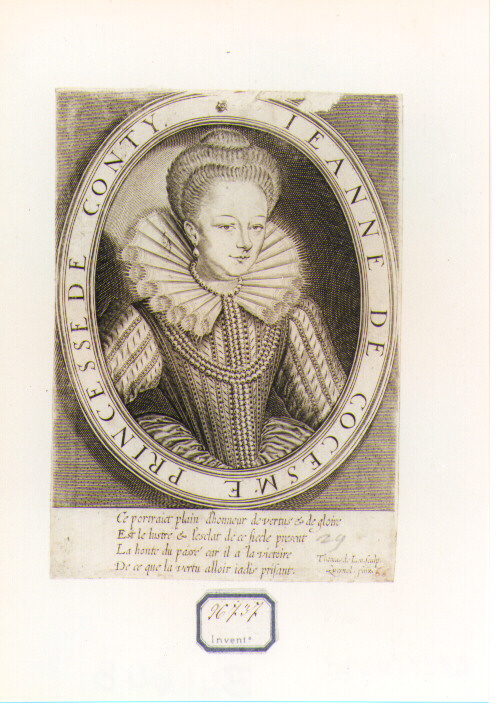 IEANNE DE COCESME PRINCESSE DE CONTY
Ce portraict plain dhonneur de vertus & de gloire
Est le lustre & l'esclat de ce siecle present
29
La honte du passé car il a la victoire
De ce que la vertu alloit iadis prisant.
Thomas de Leu sculp
Quesnel
96737
Invent°